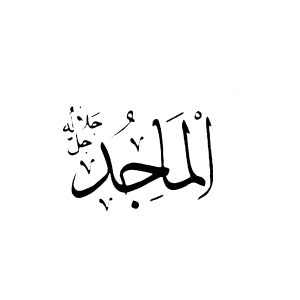 الْمَاجِدُ
جَلَّ جَلَالُهُ